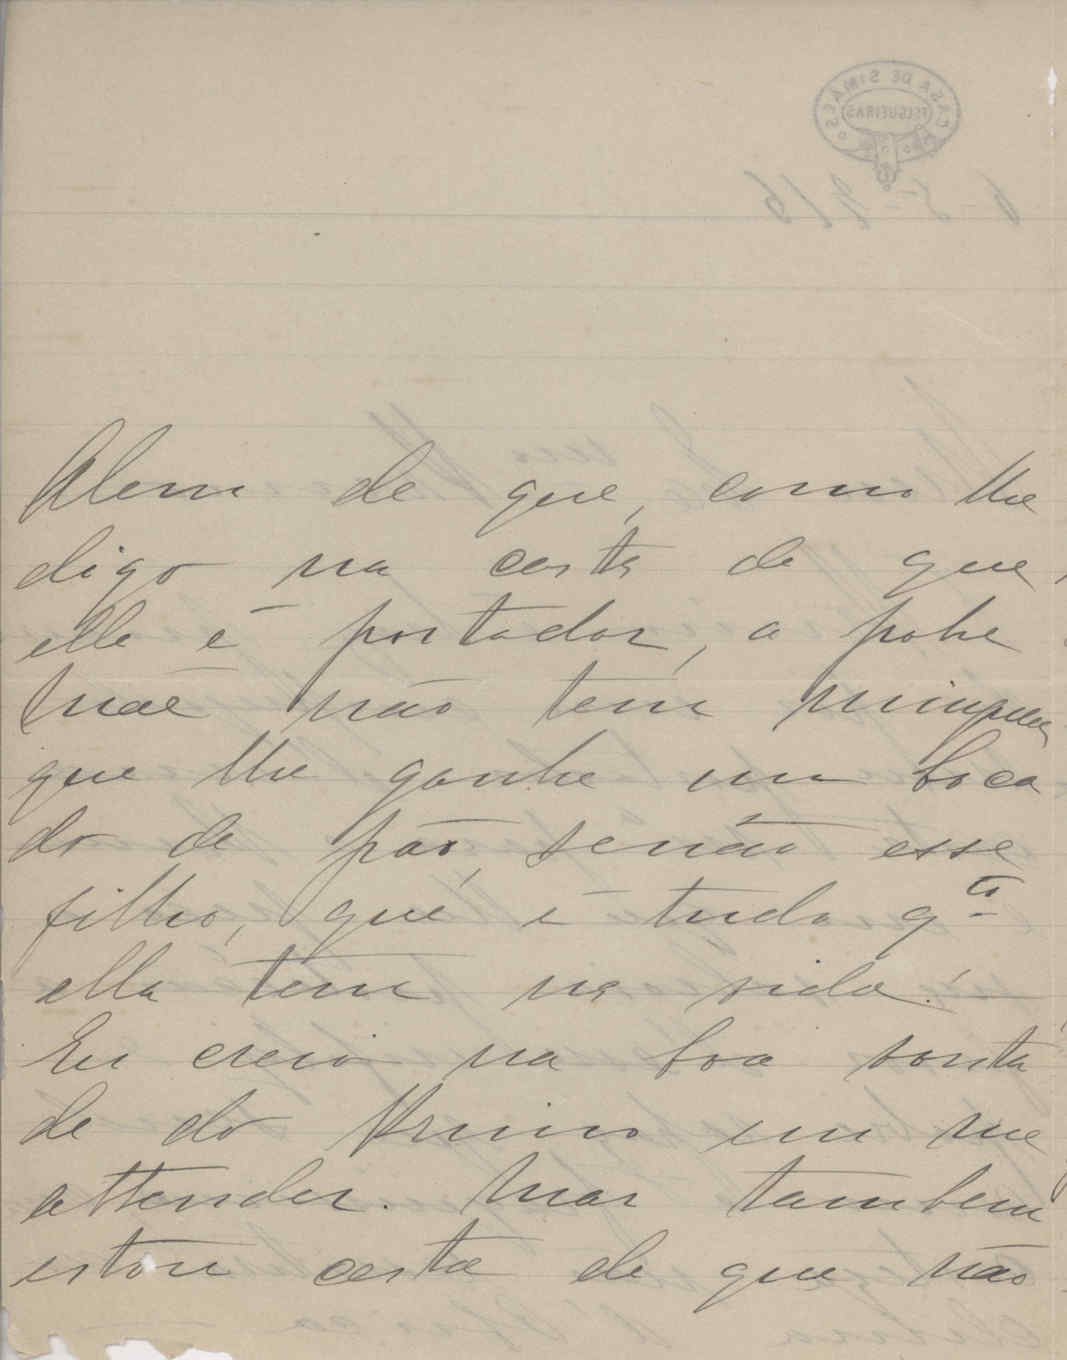 CASA DE SIMÃES
FELGUEIRAS
6-5-915
Alem de que, como lhe
digo na carta de que
elle é portador, a pobre
mãe não tem ninguem
que lhe ganhe um boca
do de pão, senão esse
filho, que é tudo qto
ella tem na vida!
Eu creio na boa vonta
de do Primo em me
attender. Mas tambem
estou certa de que não